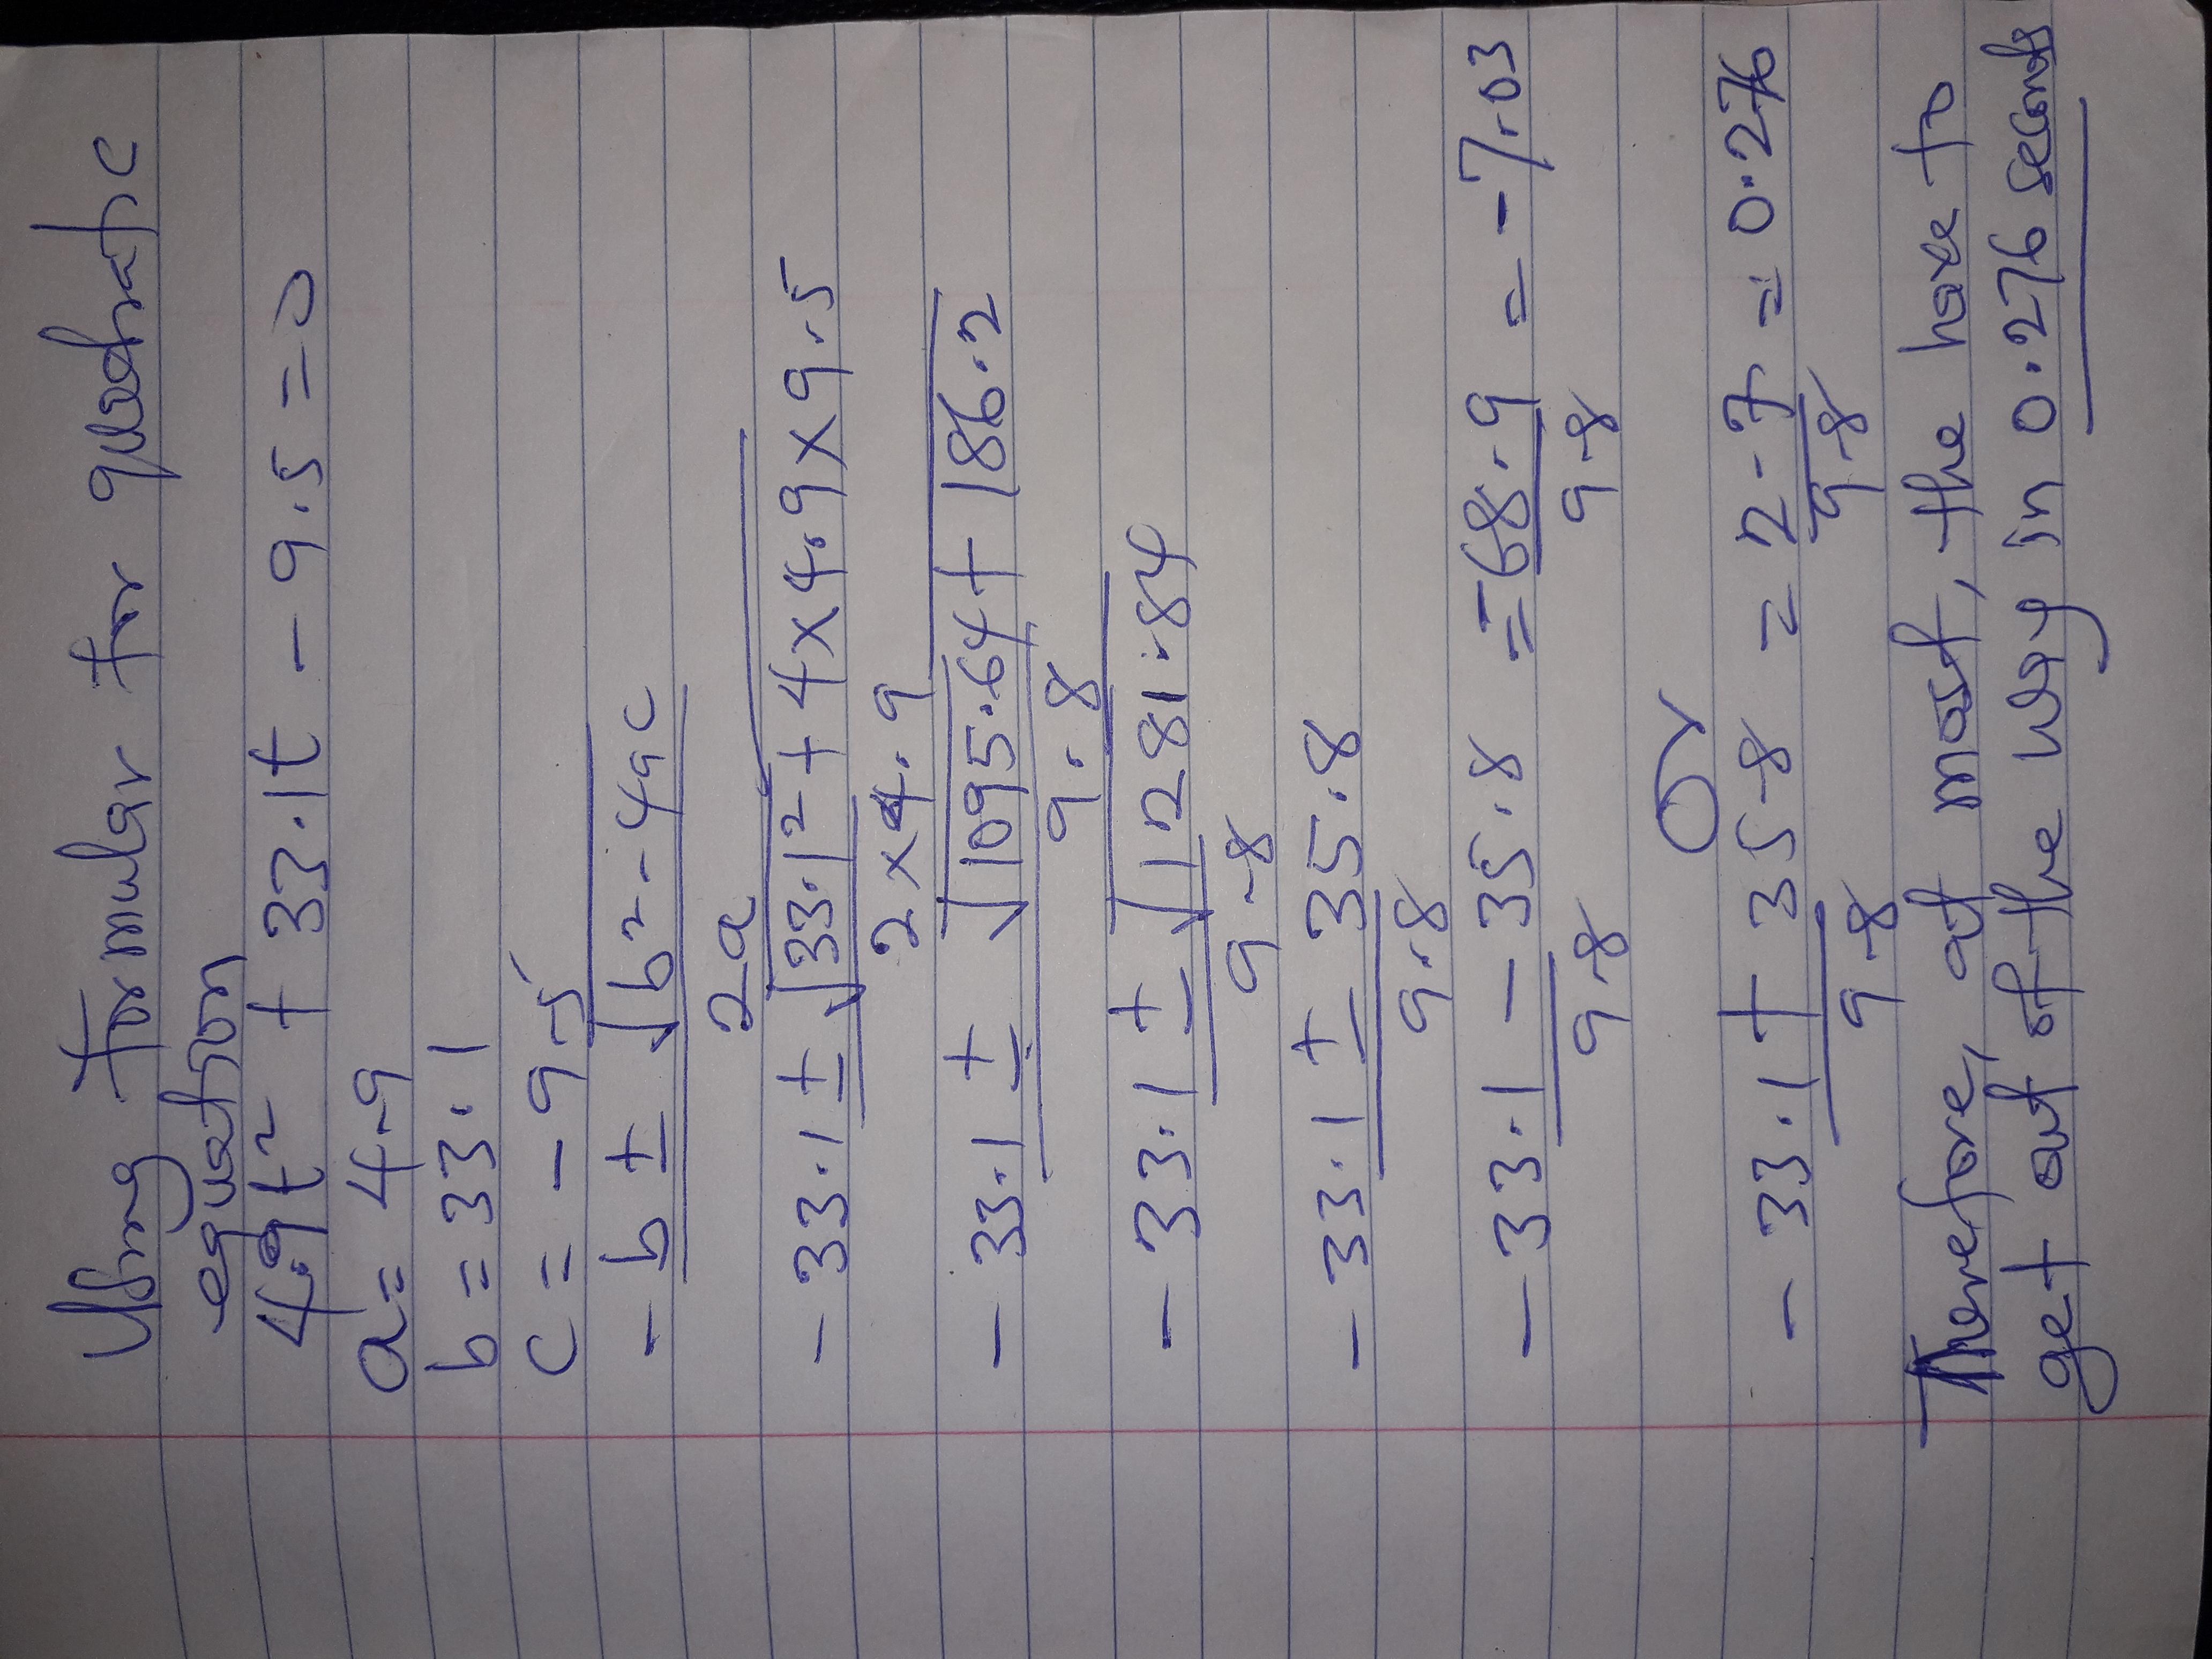 Using formular for quadratic
equation
4.9t² + 33.1t - 9.5 = 0
a = 4.9
b = 33.1
c = -9.5
-b ± √b² - 4ac
2a
-33.1 ± √33.1² + 4 x 4.9 x 9.5
2 x 4.9
-33.1 ± √1095.64 + 186.2
9.8
-33.1 ± √1281.84
9.8
-33.1 ± 35.8
9.8
-33.1 - 35.8 = -68.9 = -7.03
9.8 9.8
Or
-33.1 + 35.8 = 2.7 = 0.276
9.8 9.8
Therefore, at most, the have to
get out of the way in 0.276 seconds